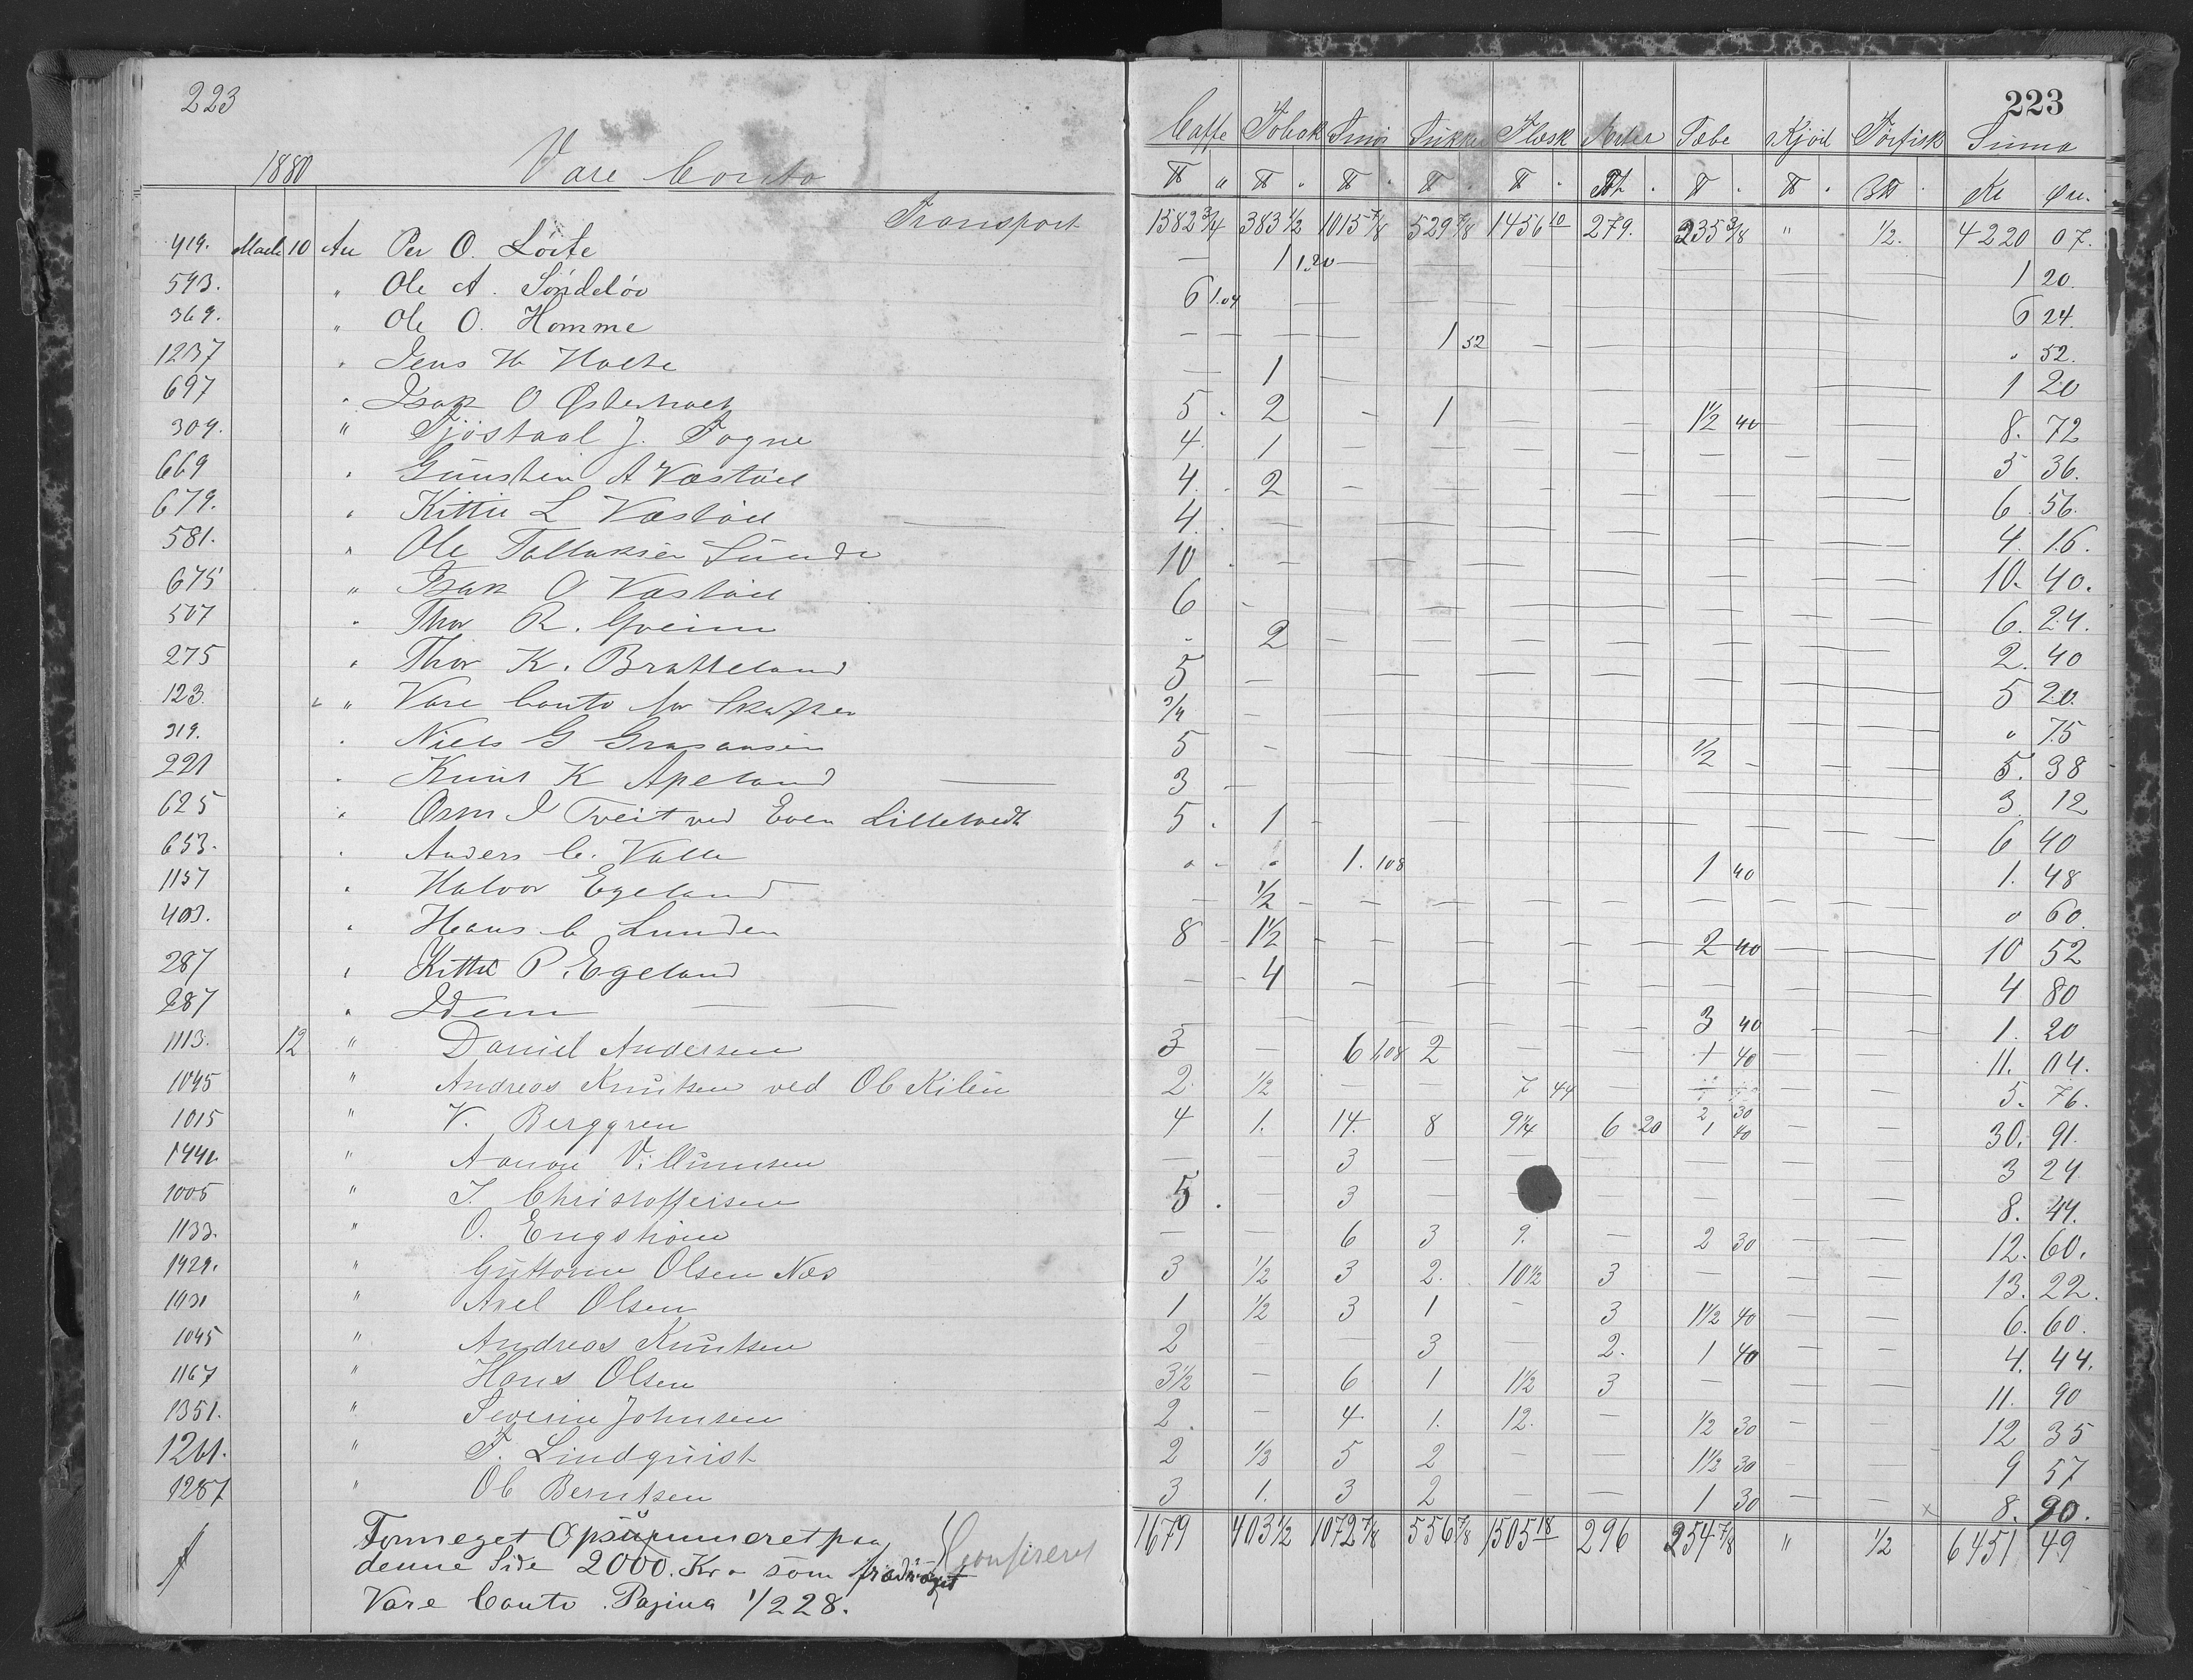 223
1880 Vare Conto
Transport
419. Marts 10 An Per O. Löite
593. " Ole A. Söndelöv
369. " Ole O. Homme
1237 " Jens H Holte
697 " Isak O Østerholt
309. " Tjöstaal J. Togne
669 " Gunsten A Væstöel
679. " Kittil L Væstöel
581. " Ole Tallaksen Sünde
675 " Isak O Væstöel
507 " Thor R. Gveim
275 " Thor K. Bratteland
123. " Vare Conto for
319. " Niels G
221 " Knut K Apeland
625 " Orm J Tveit ved Even Lilletvedt
653. " Anders C. Valle
1157 " Halvor Egeland
403. " Hans C Lunden
287 " Kittil P. Egeland
287 " Idem
1113. 12 " Daniel Andersen
1045 " Andreas Knutsen ved Ol Kilen
1015 " V. Berggren
1441 " Aanon Villumsen
1005 " J. Christoffersen
1133. " O. Engström
1429. " Guttorm Olsen Næs
1031 " Axel Olsen
1045 " Andreas Knutsen
1167 " Hans Olsen
1351. " Severin Johnsen
1261. " F. Lindquist
1287 " Ol Berntsen
Formeget Opsummeret paa
denne Side 2000. Kr. som fradraget
Vare Conto. Pagina 1/228.
Confireret
223
Caffe Tobak Smör Sukker Flesk Erter Sæbe Kjöd Törfisk Suma
Kr Öre.
1582 3/4 383 1/2 1015 7/8 529 7/8 1456 10 279. 235 3/8 " 1/2. 4220 07.
— 1 1.20 — — — — — — — 1 20.
6 1.04 — — — — — — — — 6 24.
— — — 1 52 — — — — — " 52.
— 1 — — — — — — — 1 20
5 2 — 1 — — 1 1/2 40 — — 8. 72
4. 1 — — — — — — — 5 36.
4. 2 — — — — — — — 6 56.
4. — — — — — — — — 4. 16.
10 — — — — — — — — 10. 40.
6 — — — — — — — — 6. 24.
" 2 — — — — — — — 2. 40
5 — — — — — — — — 5 20.
3/4 — — — — — — — — " 75
5 — — — — — 1/2 — — 5. 38
3 — — — — — — — — 3. 12
5 1 — — — — — — — 6 40
" " 1. 108 — — — 1 40 — — 1. 48
— 1/2 — — — — — — — " 60
8 1 1/2 — — — — 2 40 — — 10 52
— 4 — — — — — — — 4 80
— — — — — — 3 40 — — 1. 20
3 — 6 1.08 2 — — 1 40 — — 11. 04.
2. 1/2 — — 7 44 — — — 5. 76.
4 1. 14. 8 9 1/4 6 20 2 30 1 40 — — 30. 91.
— — 3 — — — — — — 3 24
5. — 3 — — — — — 8. 44.
— — 6 3 9. — 2 30 — — 12. 60.
3 1/2 3 2. 10 1/2 3 — — — 13. 22.
1 1/2 3 1 — 3 1 1/2 40 — — 6. 60.
2 — — 3 — 2. 1 40 — — 4. 44.
3 1/2 — 6 1 1 1/2 3 — — — 11. 90
2. — 4 1. 12. — 1/2 30 — — 12 35
2 1/2 5 2 — — 1 1/2 30 — — 9 57
3 1. 3 2 — — 1 30 — — x 8. 90.
1679 403 1/2 1072 7/8 556 7/8 1505 18 296 254 7/8 " 1/2 6451 49